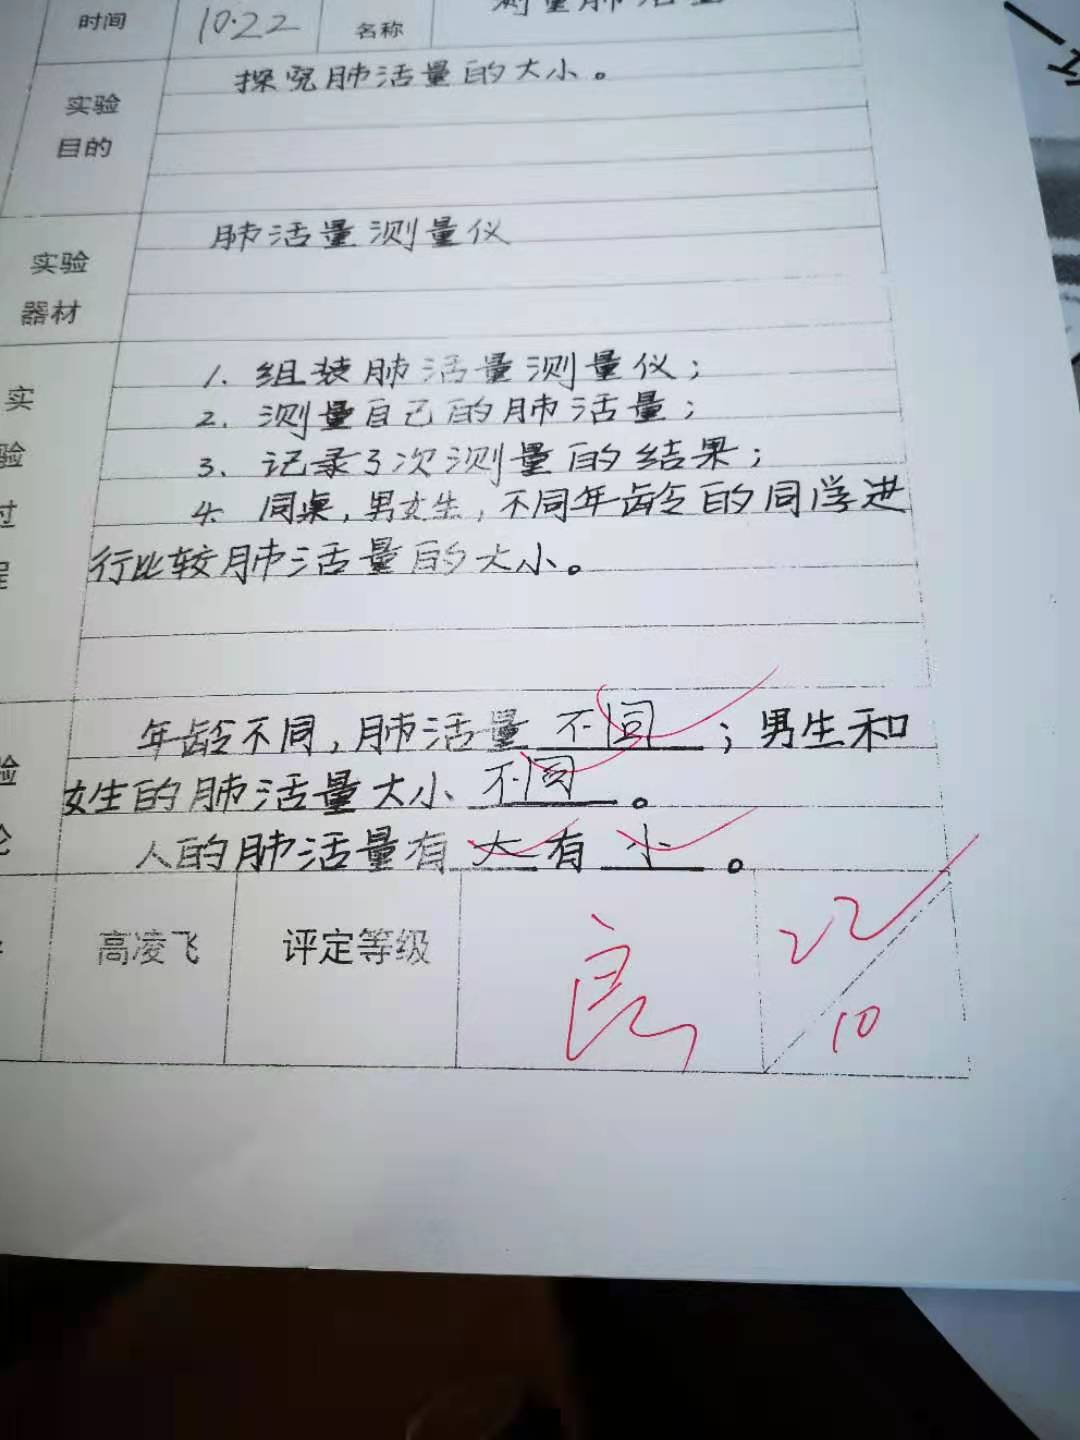 时间 10.22 名称 测量肺活量
探究肺活量的大小。
实验
目的
肺活量测量仪
实验
器材
1. 组装肺活量测量仪；
实
2. 测量自己的肺活量；
验
3. 记录3次测量的结果；
过
4. 同桌，男女生，不同年龄的同学进
程
行比较肺活量的大小。
年龄不同，肺活量 不同 ；男生和
验
女生的肺活量大小 不同 。
论
人的肺活量有 大 有 小 。
高凌飞 评定等级 良 22
10